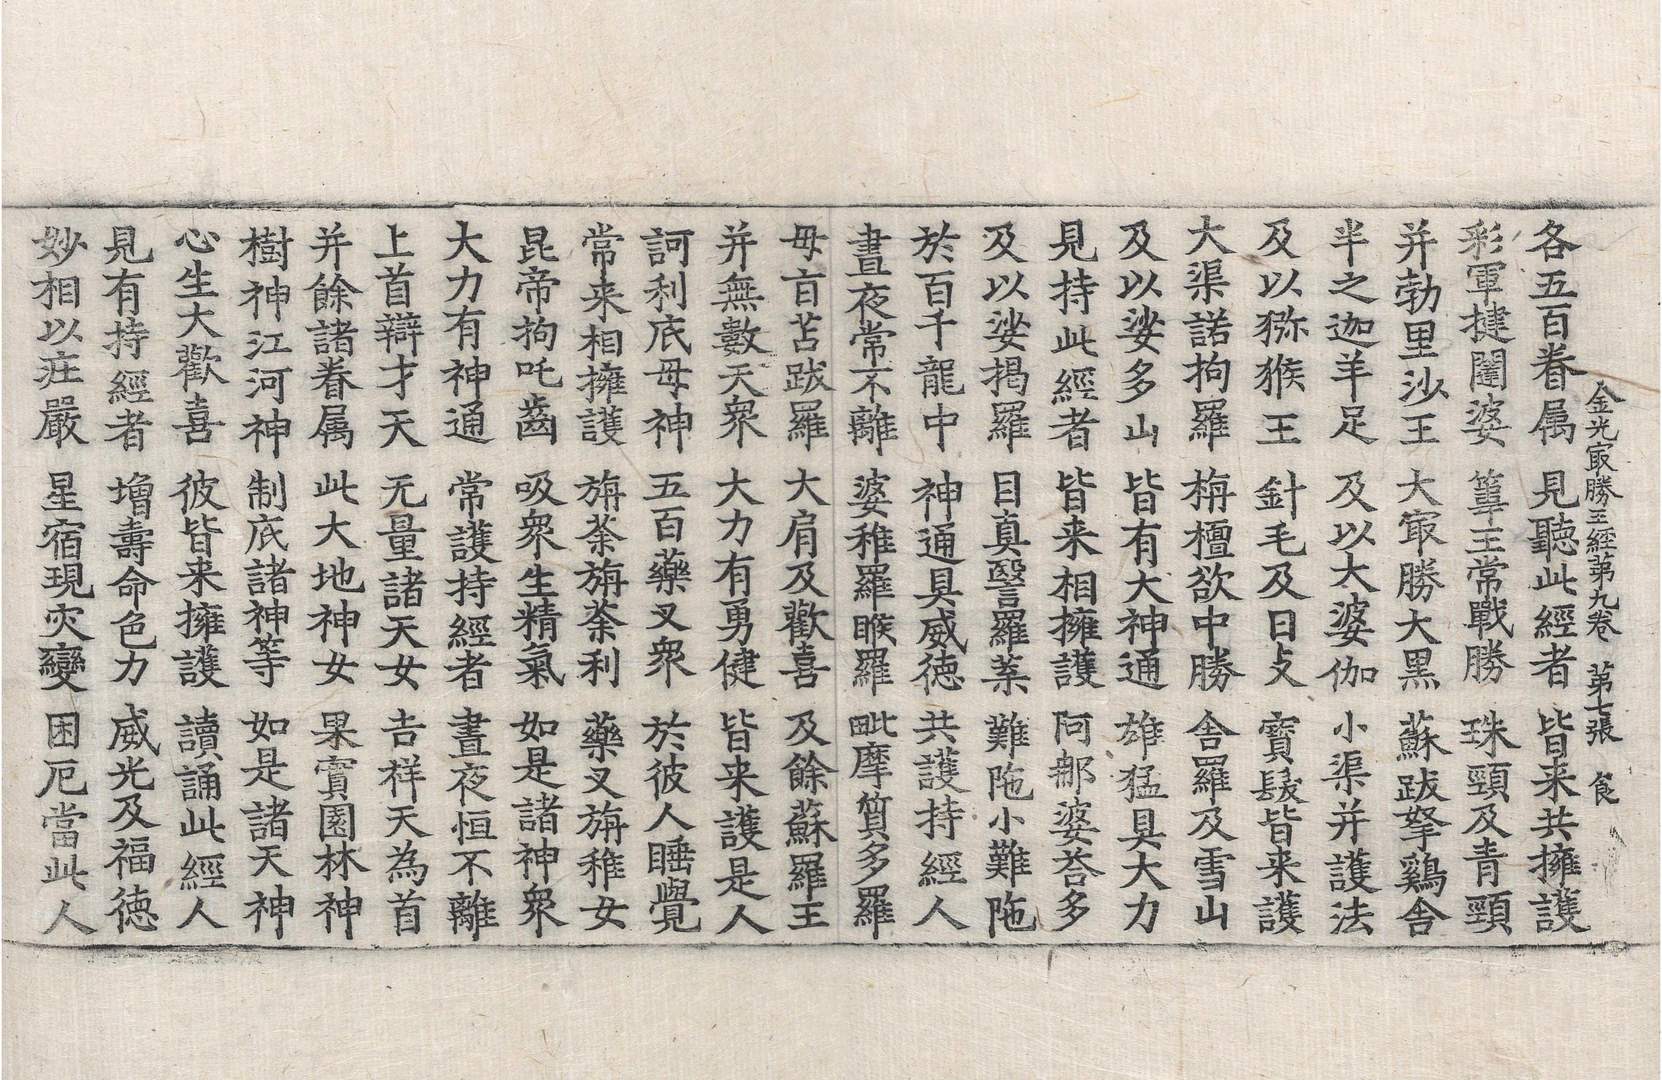 金光㝡勝王經第九卷　第七張　食
各五百眷属　見聽此經者　皆来共擁護
彩軍揵闥婆　葦王常戰勝　珠頸及青頸
并勃里沙王　大㝡勝大黑　蘇跋拏鷄舍
半之迦羊足　及以大婆伽　小渠并護法
及以猕猴王　針毛及日攴　寶髮皆来護
大渠諾拘羅　栴檀欲中勝　舍羅及雪山
及以娑多山　皆有大神通　雄猛具大力
見持此經者　皆来相擁護　阿那婆荅多
及以娑揭羅　目真毉羅葉　難陁小難陁
於百千龍中　神通具威德　共護持經人
晝夜常不離　婆稚羅睺羅　毗摩質多羅
母旨苫跋羅　大肩及歡喜　及餘蘇羅王
并無數天衆　大力有勇健　皆来護是人
訶利底母神　五百藥叉衆　於彼人睡覺
常来相擁護　旃荼旃荼利　藥叉旃稚女
昆帝拘吒齒　吸衆生精氣　如是諸神衆
大力有神通　常護持經者　晝夜恒不離
上首辯才天　无量諸天女　吉祥天為首
并餘諸眷属　此大地神女　果實園林神
樹神江河神　制底諸神等　如是諸天神
心生大歡喜　彼皆来擁護　讀誦此經人
見有持經者　增壽命色力　威光及福德
妙相以㽵嚴　星宿現灾變　困厄當此人